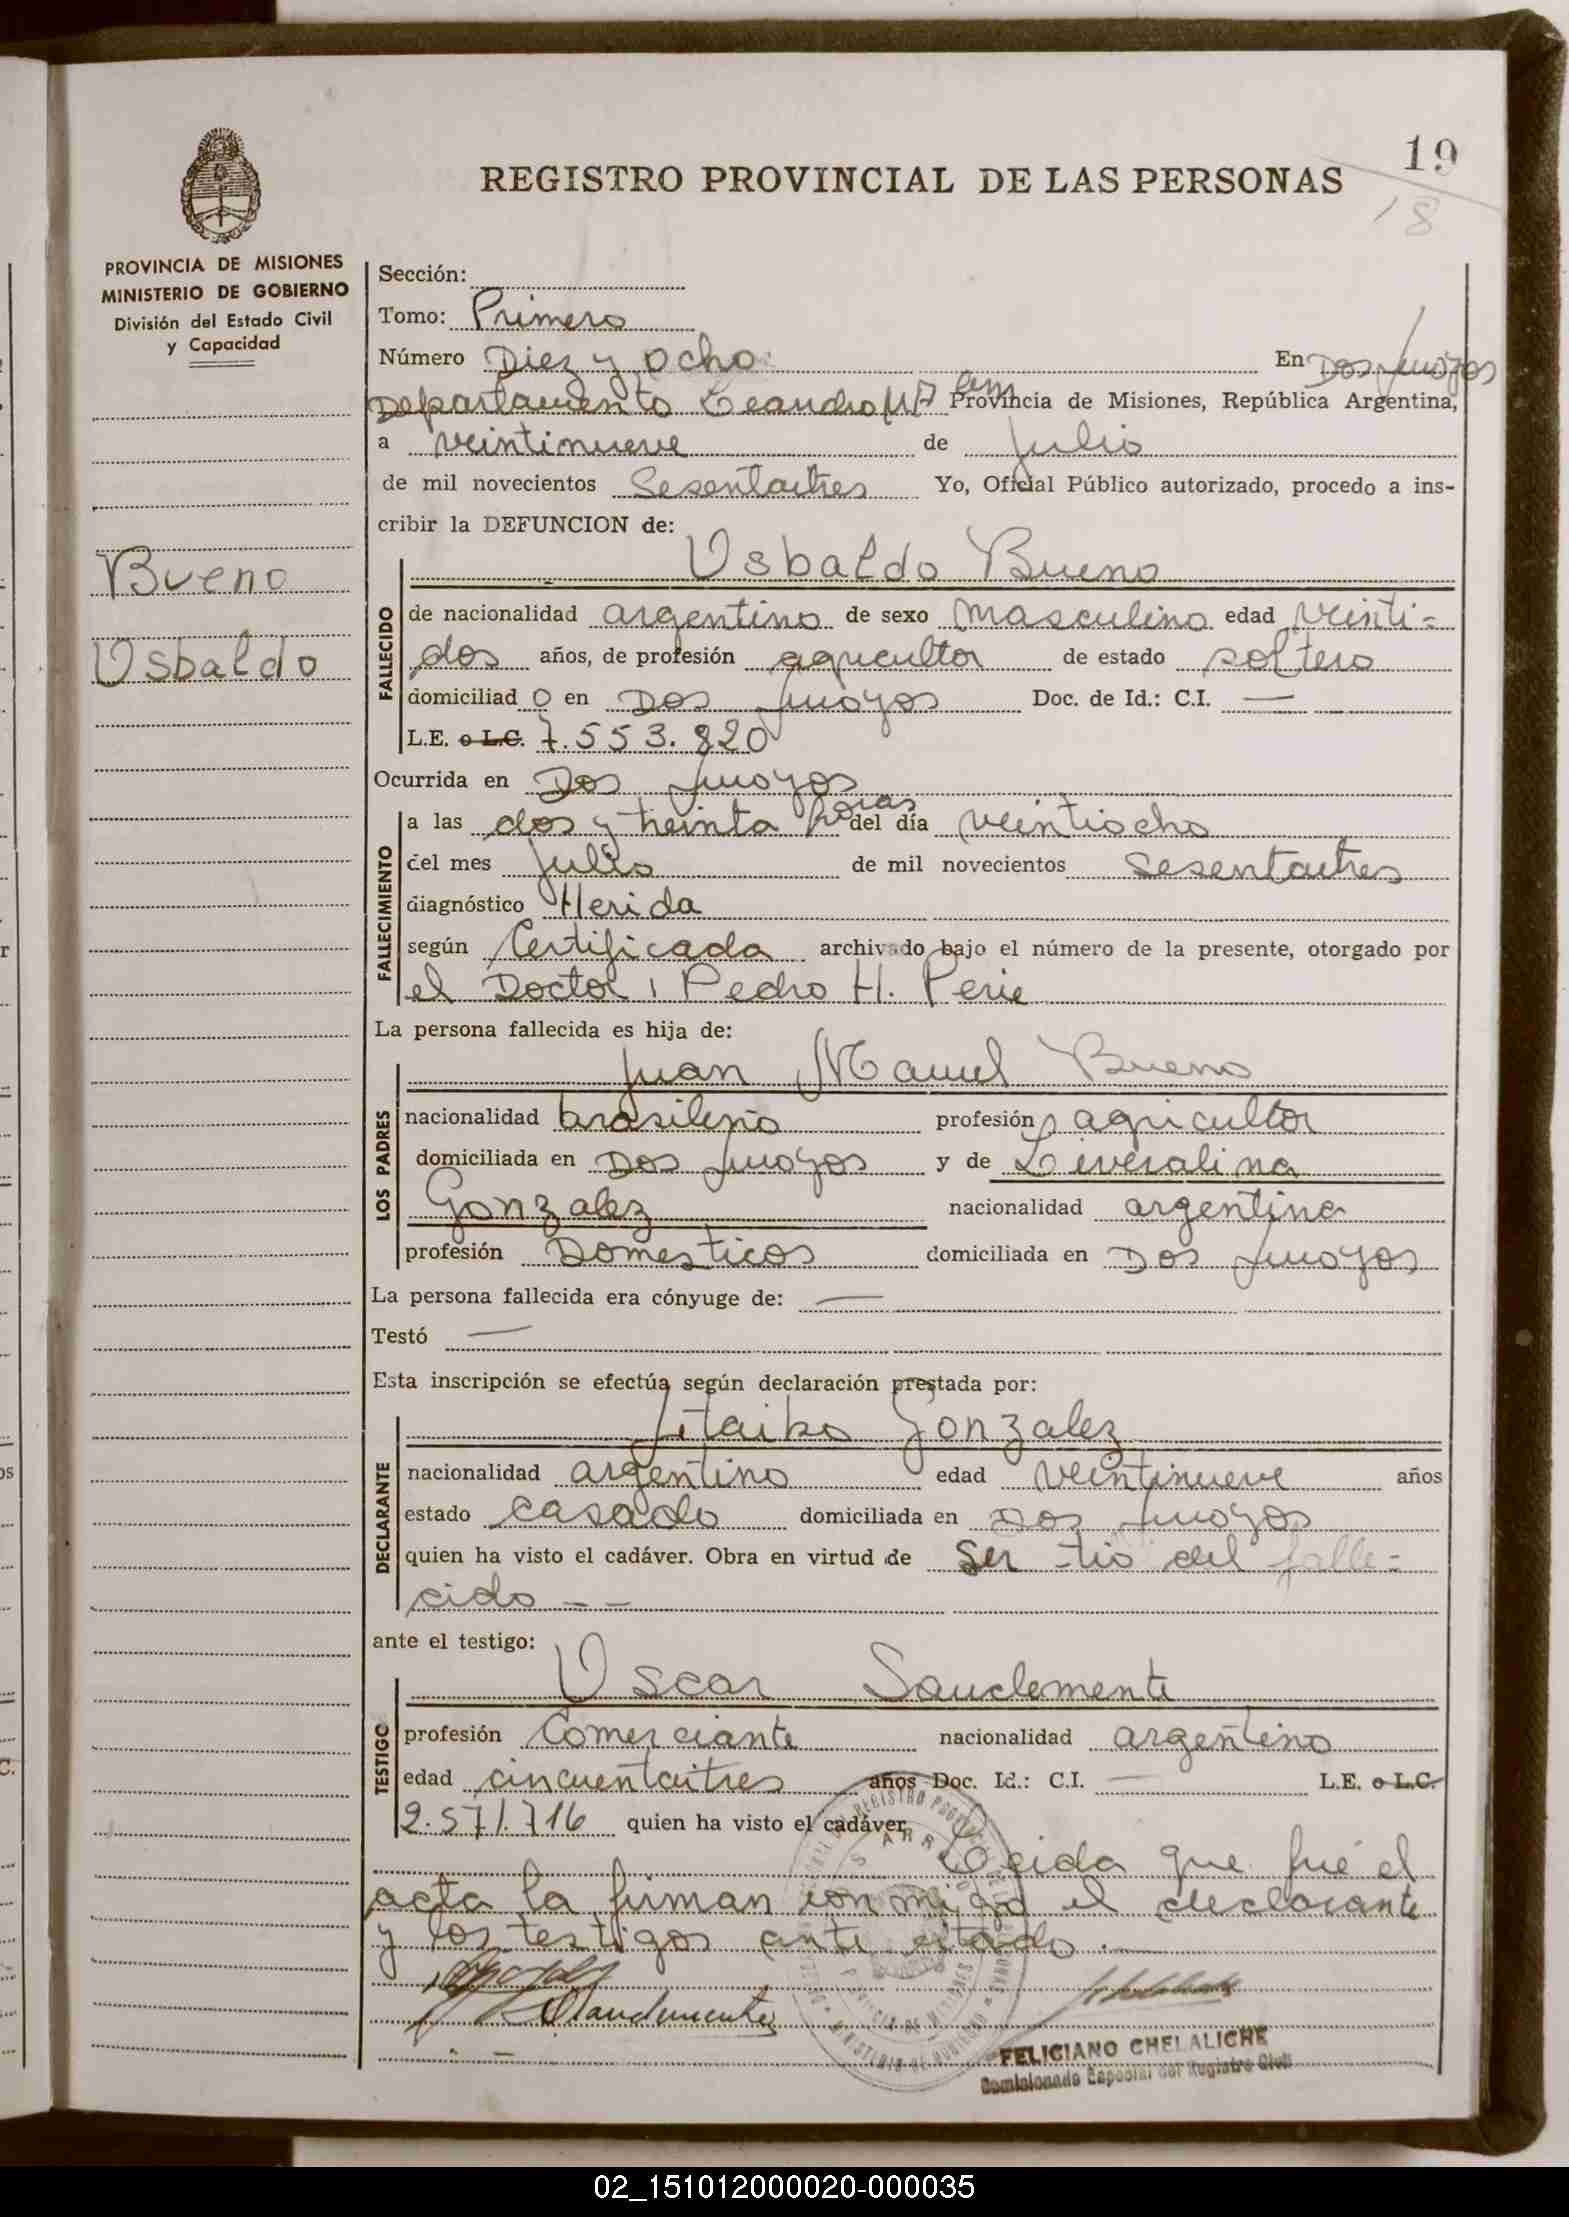 19
18
REGISTRO PROVINCIAL DE LAS PERSONAS
PROVINCIA DE MISIONES
MINISTERIO DE GOBIERNO
División del Estado Civil
y Capacidad
Bueno
Usbaldo
Sección:
Tomo: Primero
Número Diez y ocho En Dos Arroyos
Departamento Leandro N Alem Provincia de Misiones, República Argentina,
a veintinueve de Julio
de mil novecientos Sesentaitres Yo, Oficial Público autorizado, procedo a ins-
cribir la DEFUNCION de:
Usbaldo Bueno
FALLECIDO
de nacionalidad argentino de sexo Masculino edad veinti-
dos años, de profesión agricultor de estado soltero
domiciliad o en Dos Arroyos Doc. de Id.: C.I. —
L.E. o L.C. 7.553.820
Ocurrida en Dos Arroyos
FALLECIMIENTO
a las dos y treinta horas del día veintiocho
del mes Julio de mil novecientos Sesentaitres
diagnóstico Herida
según Certificado archivado bajo el número de la presente, otorgado por
el Doctor, Pedro H. Perie
La persona fallecida es hija de:
Juan Manuel Bueno
LOS PADRES
nacionalidad brasileño profesión agricultor
domiciliada en Dos Arroyos y de Liveralina
Gonzalez nacionalidad argentina
profesión Domesticos domiciliada en Dos Arroyos
La persona fallecida era cónyuge de: —
Testó —
Esta inscripción se efectúa según declaración prestada por:
Gonzalez
DECLARANTE
nacionalidad argentino edad veintinueve años
estado casado domiciliada en Dos Arroyos
quien ha visto el cadáver. Obra en virtud de ser tio del falle-
cido — —
ante el testigo:
Oscar Sanclemente
TESTIGO
profesión Comerciante nacionalidad argentino
edad cincuentaitres años Doc. Id.: C.I. — L.E. o L.C.
2.571.716 quien ha visto el cadáver
Leida que fué el
acta la firman conmigo el declarante
y los testigos ante citado.—
Sanclemente
FELICIANO CHELALICHE
Comisionado Especial del Registro Civil
02_151012000020-000035